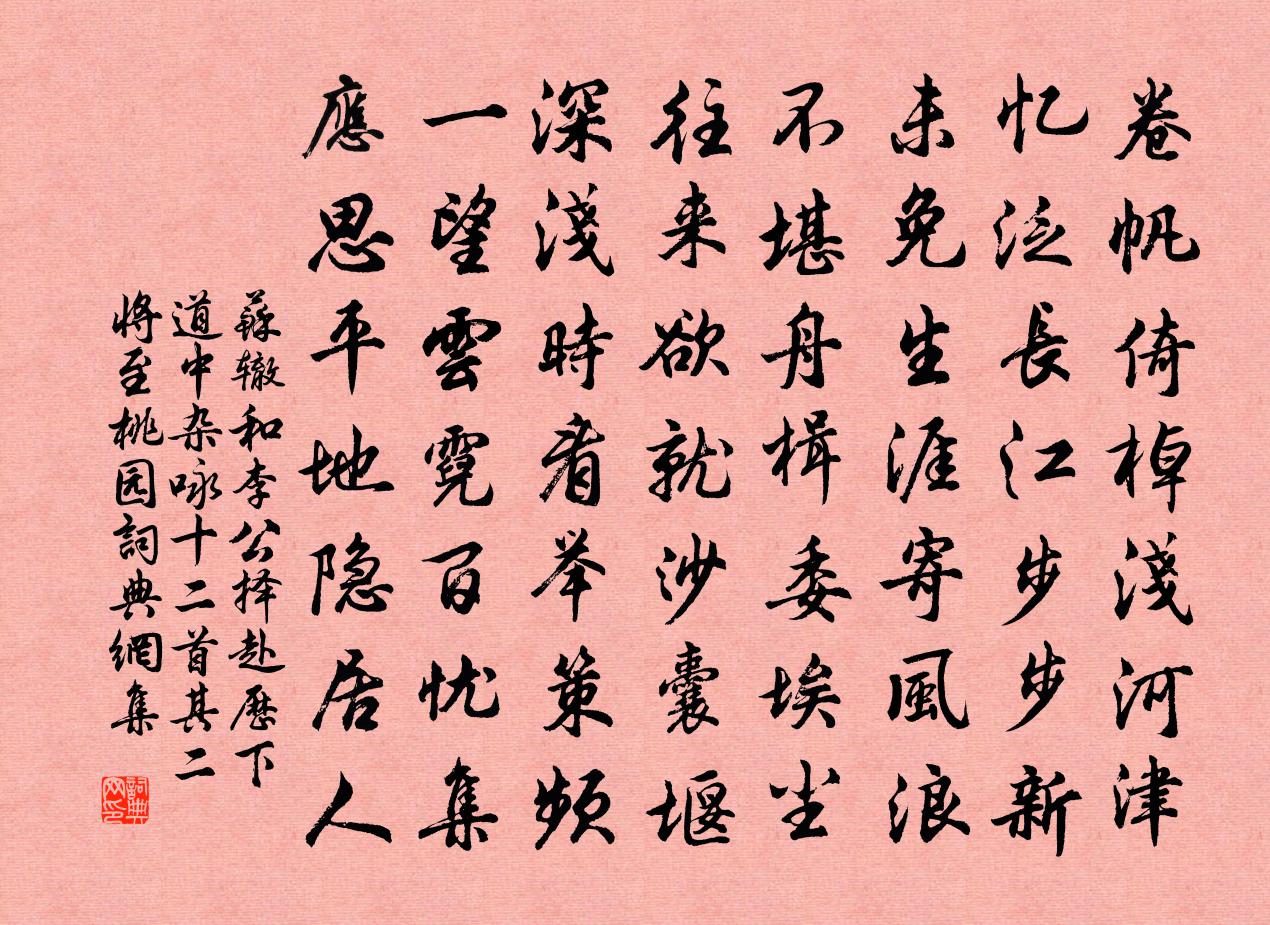 卷帆倚棹淺河津
忆泛長江步步新
未免生涯寄風浪
不堪舟楫委埃尘
往来欲就沙囊堰
深淺時看举策频
一望雲霓百忧集
應思平地隐居人
蘇辙和李公择赴歷下
道中杂咏十二首其二
將至桃园詞典網集
詞典
网印